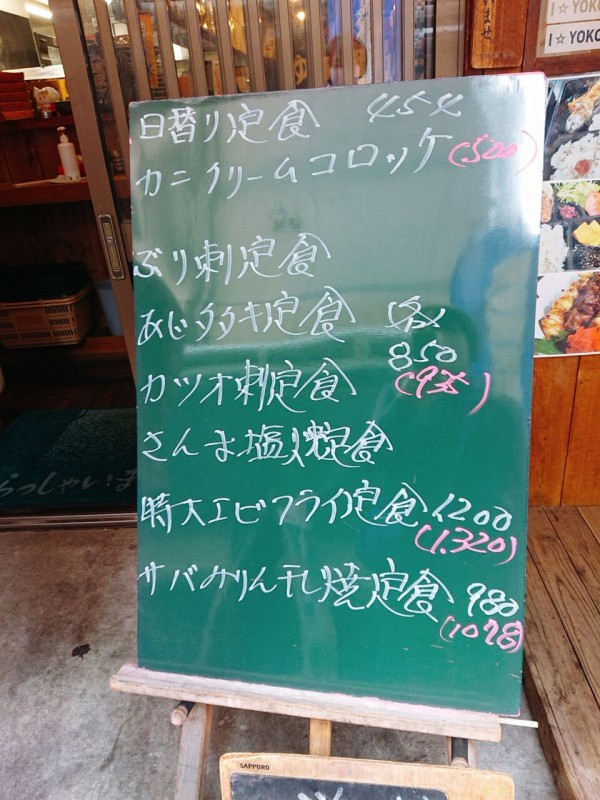 ませ
I☆YOKO
I☆YOKO
日替り定食 454
カニクリームコロッケ (500)
ぶり刺定食
あじタタキ定食 各
850
カツオ刺定食 (935)
さんま塩焼定食
特大エビフライ定食 1200
(1.320)
サバみりん干し焼定食 980
(1078)
らっしゃいま
SAPPORO